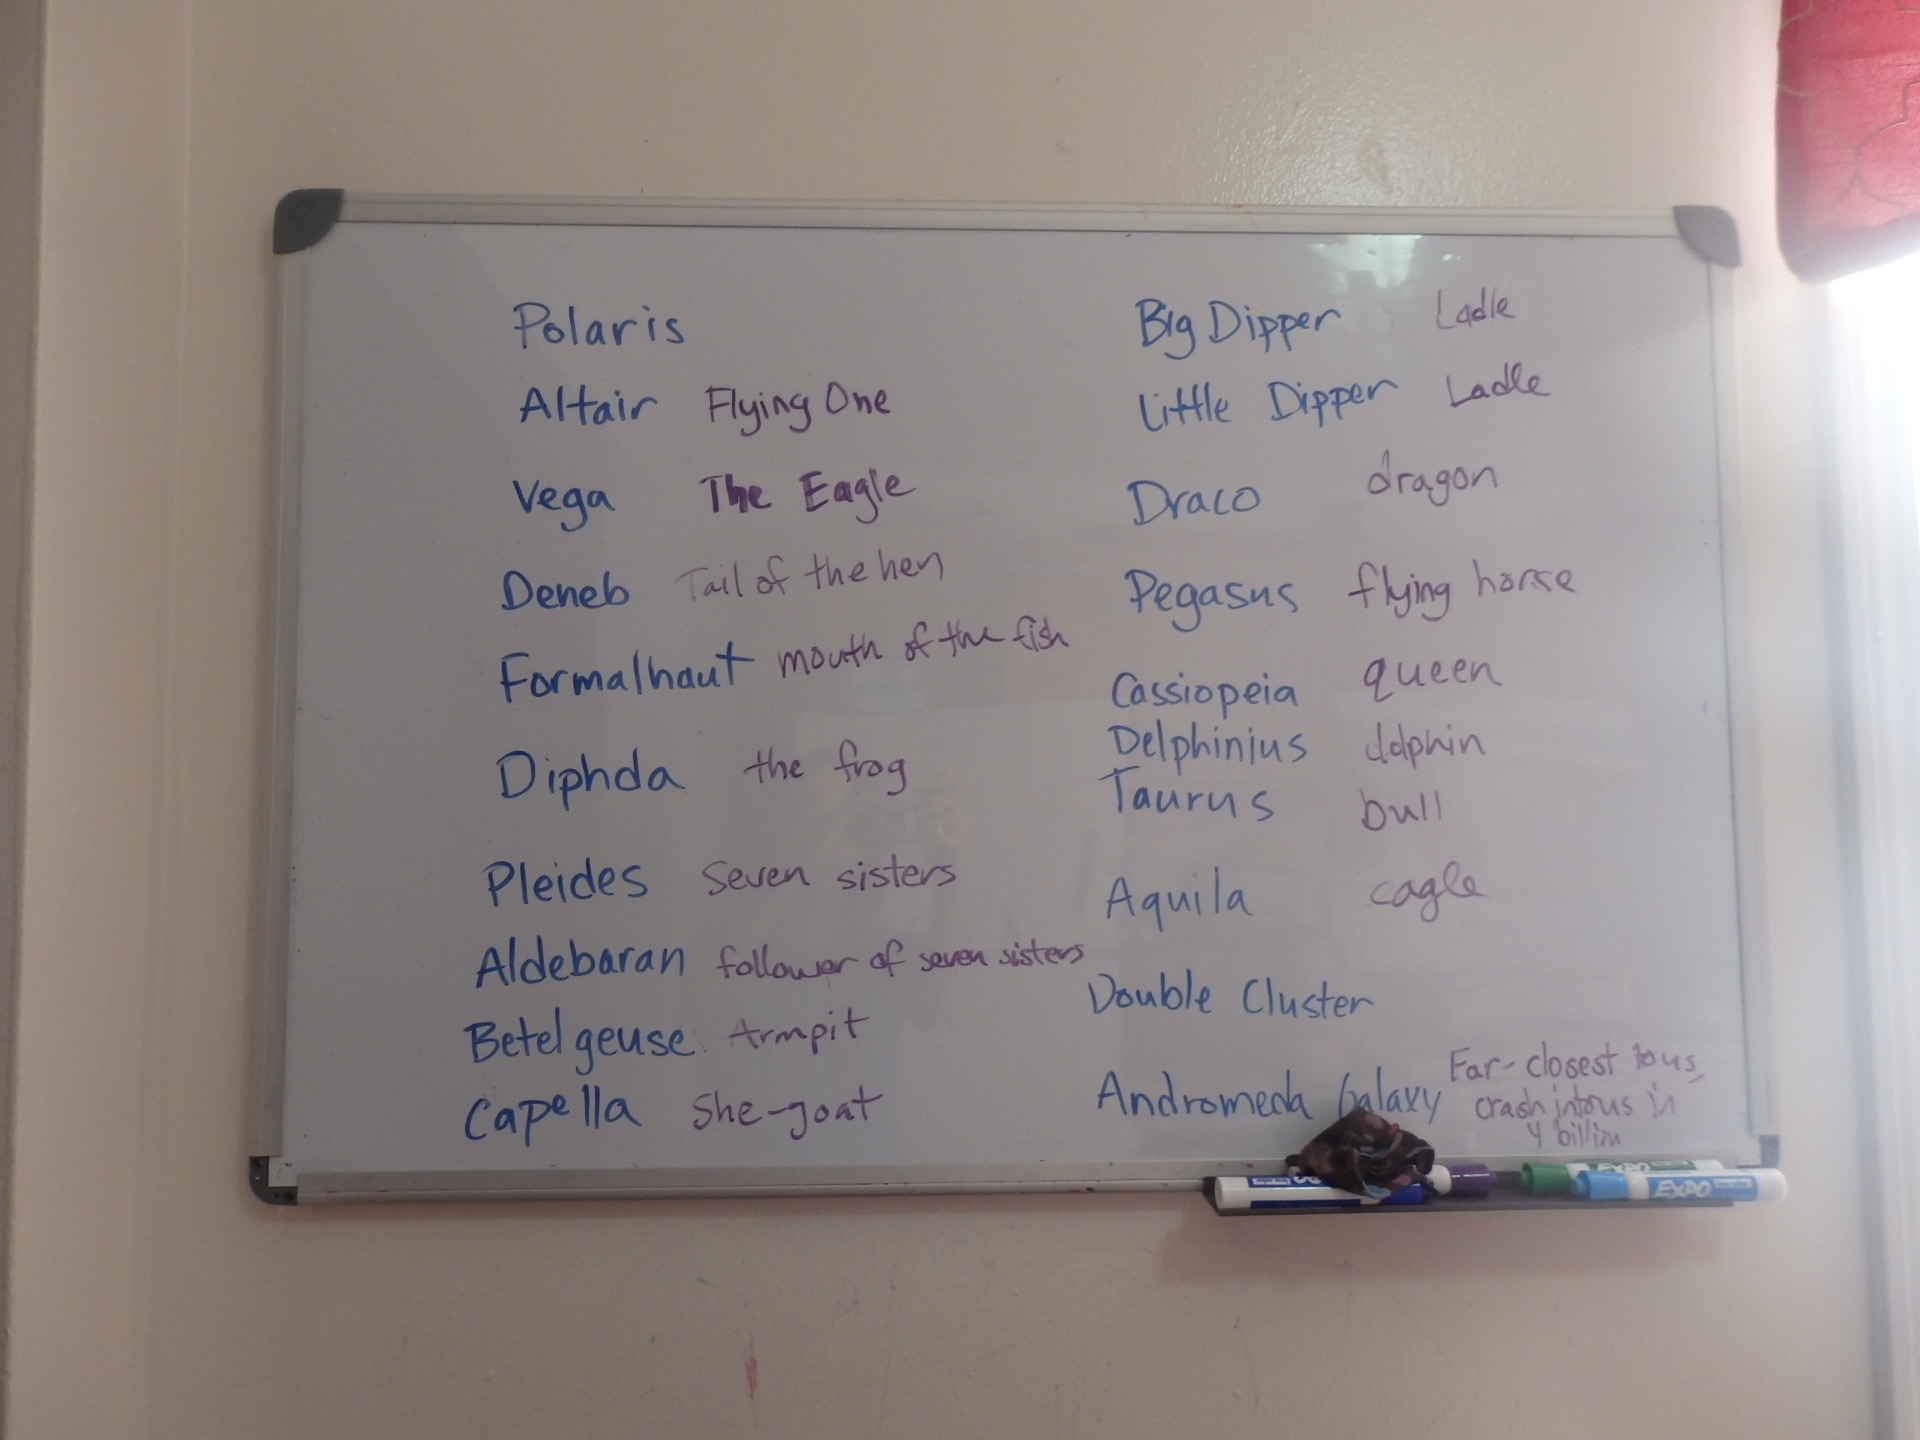 Polaris
Altair Flying One
Vega The Eagle
Deneb Tail of the hen
Formalhaut mouth of the fish
Diphda the frog
Pleides Seven sisters
Aldebaran follower of seven sisters
Betelgeuse Armpit
Capella She-goat
Big Dipper Ladle
Little Dipper Ladle
Draco dragon
Pegasus flying horse
Cassiopeia queen
Delphinius dolphin
Taurus bull
Aquila eagle
Double Cluster
Andromeda Galaxy Far-closest to us,
crash into us in
4 billion
EXPO
EXPO